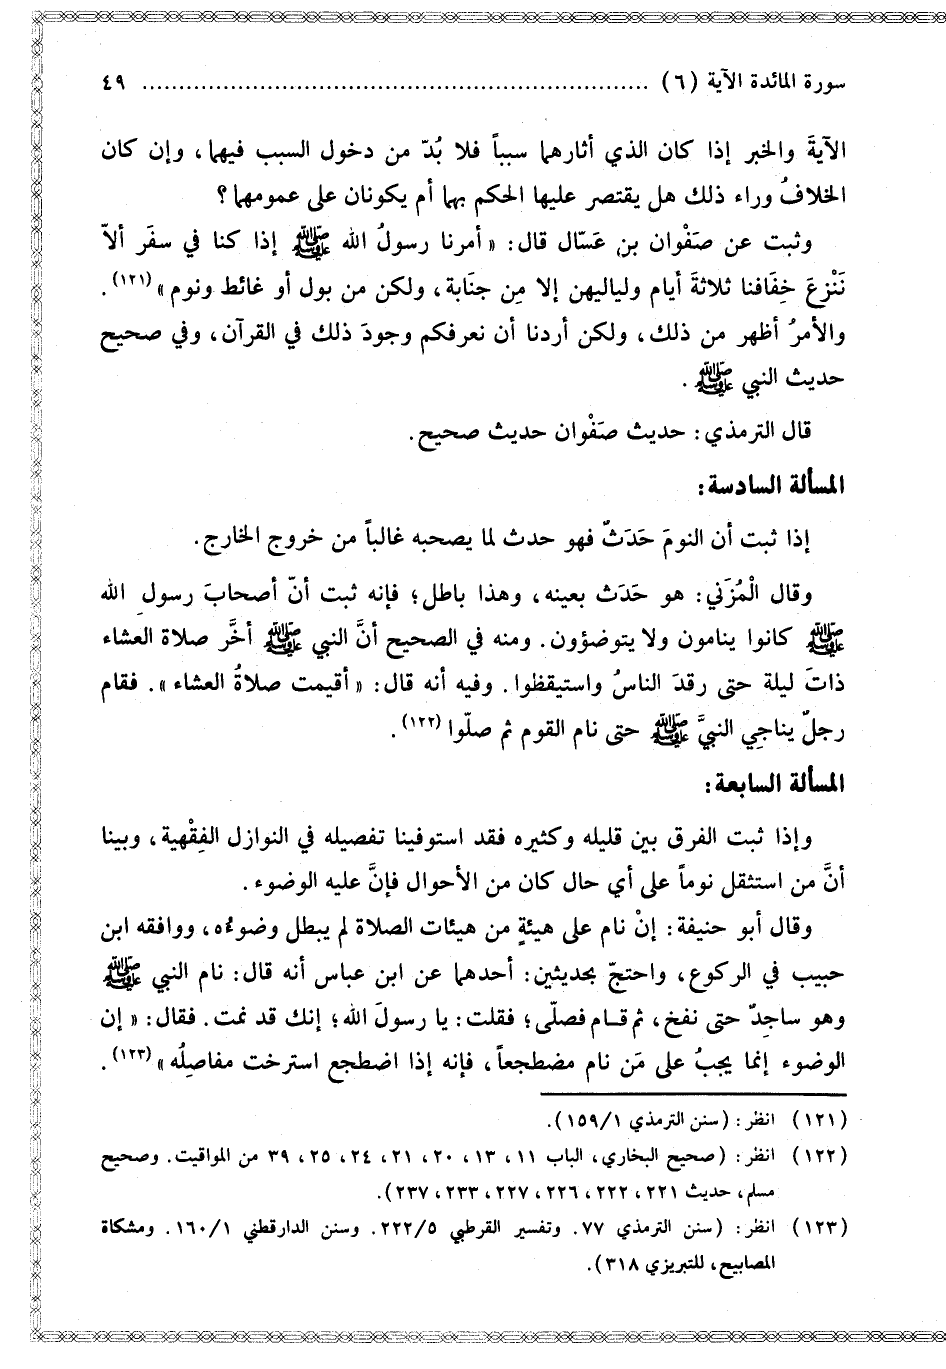 سورة المائدة الآية (٦) ........................................................................ ٤٩
الآيةَ والخبر إذا كان الذي أثارهما سبباً فلا بُدّ من دخول السبب فيهما، وإن كان
الخلافُ وراء ذلك هل يقتصر عليها الحكم بهما أم يكونان على عمومهما؟
وثبت عن صَفْوان بن عَسّال قال: «أمرنا رسولُ الله ﷺ إذا كنا في سفَر ألاّ
نَنْزعَ خِفَافنا ثلاثةَ أيام ولياليهن إلا مِن جنَابة، ولكن من بول أو غائط ونوم»(١٢١).
والأمرُ أظهر من ذلك، ولكن أردنا أن نعرفكم وجودَ ذلك في القرآن، وفي صحيح
حديث النبي ﷺ.
قال الترمذي: حديث صَفْوان حديث صحيح.
المسألة السادسة:
إذا ثبت أن النومَ حَدَثٌ فهو حدث لما يصحبه غالباً من خروج الخارج.
وقال الْمُزَني: هو حَدَث بعينه، وهذا باطل؛ فإنه ثبت أنّ أصحابَ رسولِ الله
ﷺ كانوا ينامون ولا يتوضؤون. ومنه في الصحيح أنَّ النبي ﷺ أخَّر صلاة العشاء
ذاتَ ليلة حتى رقدَ الناسُ واستيقظوا. وفيه أنه قال: «أقيمت صلاةُ العشاء». فقام
رجلٌ يناجِي النبيَّ ﷺ حتى نام القوم ثم صلّوا(١٢٢).
المسألة السابعة:
وإذا ثبت الفرق بين قليله وكثيره فقد استوفينا تفصيله في النوازل الفِقْهية، وبينا
أنَّ من استثقل نوماً على أي حال كان من الأحوال فإنَّ عليه الوضوء.
وقال أبو حنيفة: إنْ نام على هيئةٍ من هيئات الصلاة لم يبطل وضوءُه، ووافقه ابن
حبيب في الركوع، واحتجّ بحديثين: أحدهما عن ابن عباس أنه قال: نام النبي ﷺ
وهو ساجِدٌ حتى نفخ، ثم قـام فصلّى؛ فقلت: يا رسولَ الله؛ إنك قد نمت. فقال: «إن
الوضوء إنما يجبُ على مَن نام مضطجعاً، فإنه إذا اضطجع استرخت مفاصِلُه»(١٢٣).
(١٢١) انظر: (سنن الترمذي ١٥٩/١).
(١٢٢) انظر: (صحيح البخاري، الباب ١١، ١٣، ٢٠، ٢١، ٢٤، ٢٥، ٣٩ من المواقيت. وصحيح
مسلم، حديث ٢٢١، ٢٢٢، ٢٢٦، ٢٢٧، ٢٣٣، ٢٣٧).
(١٢٣) انظر: (سنن الترمذي ٧٧. وتفسير القرطبي ٢٢٢/٥. وسنن الدارقطني ١٦٠/١. ومشكاة
المصابيح، للتبريزي ٣١٨).